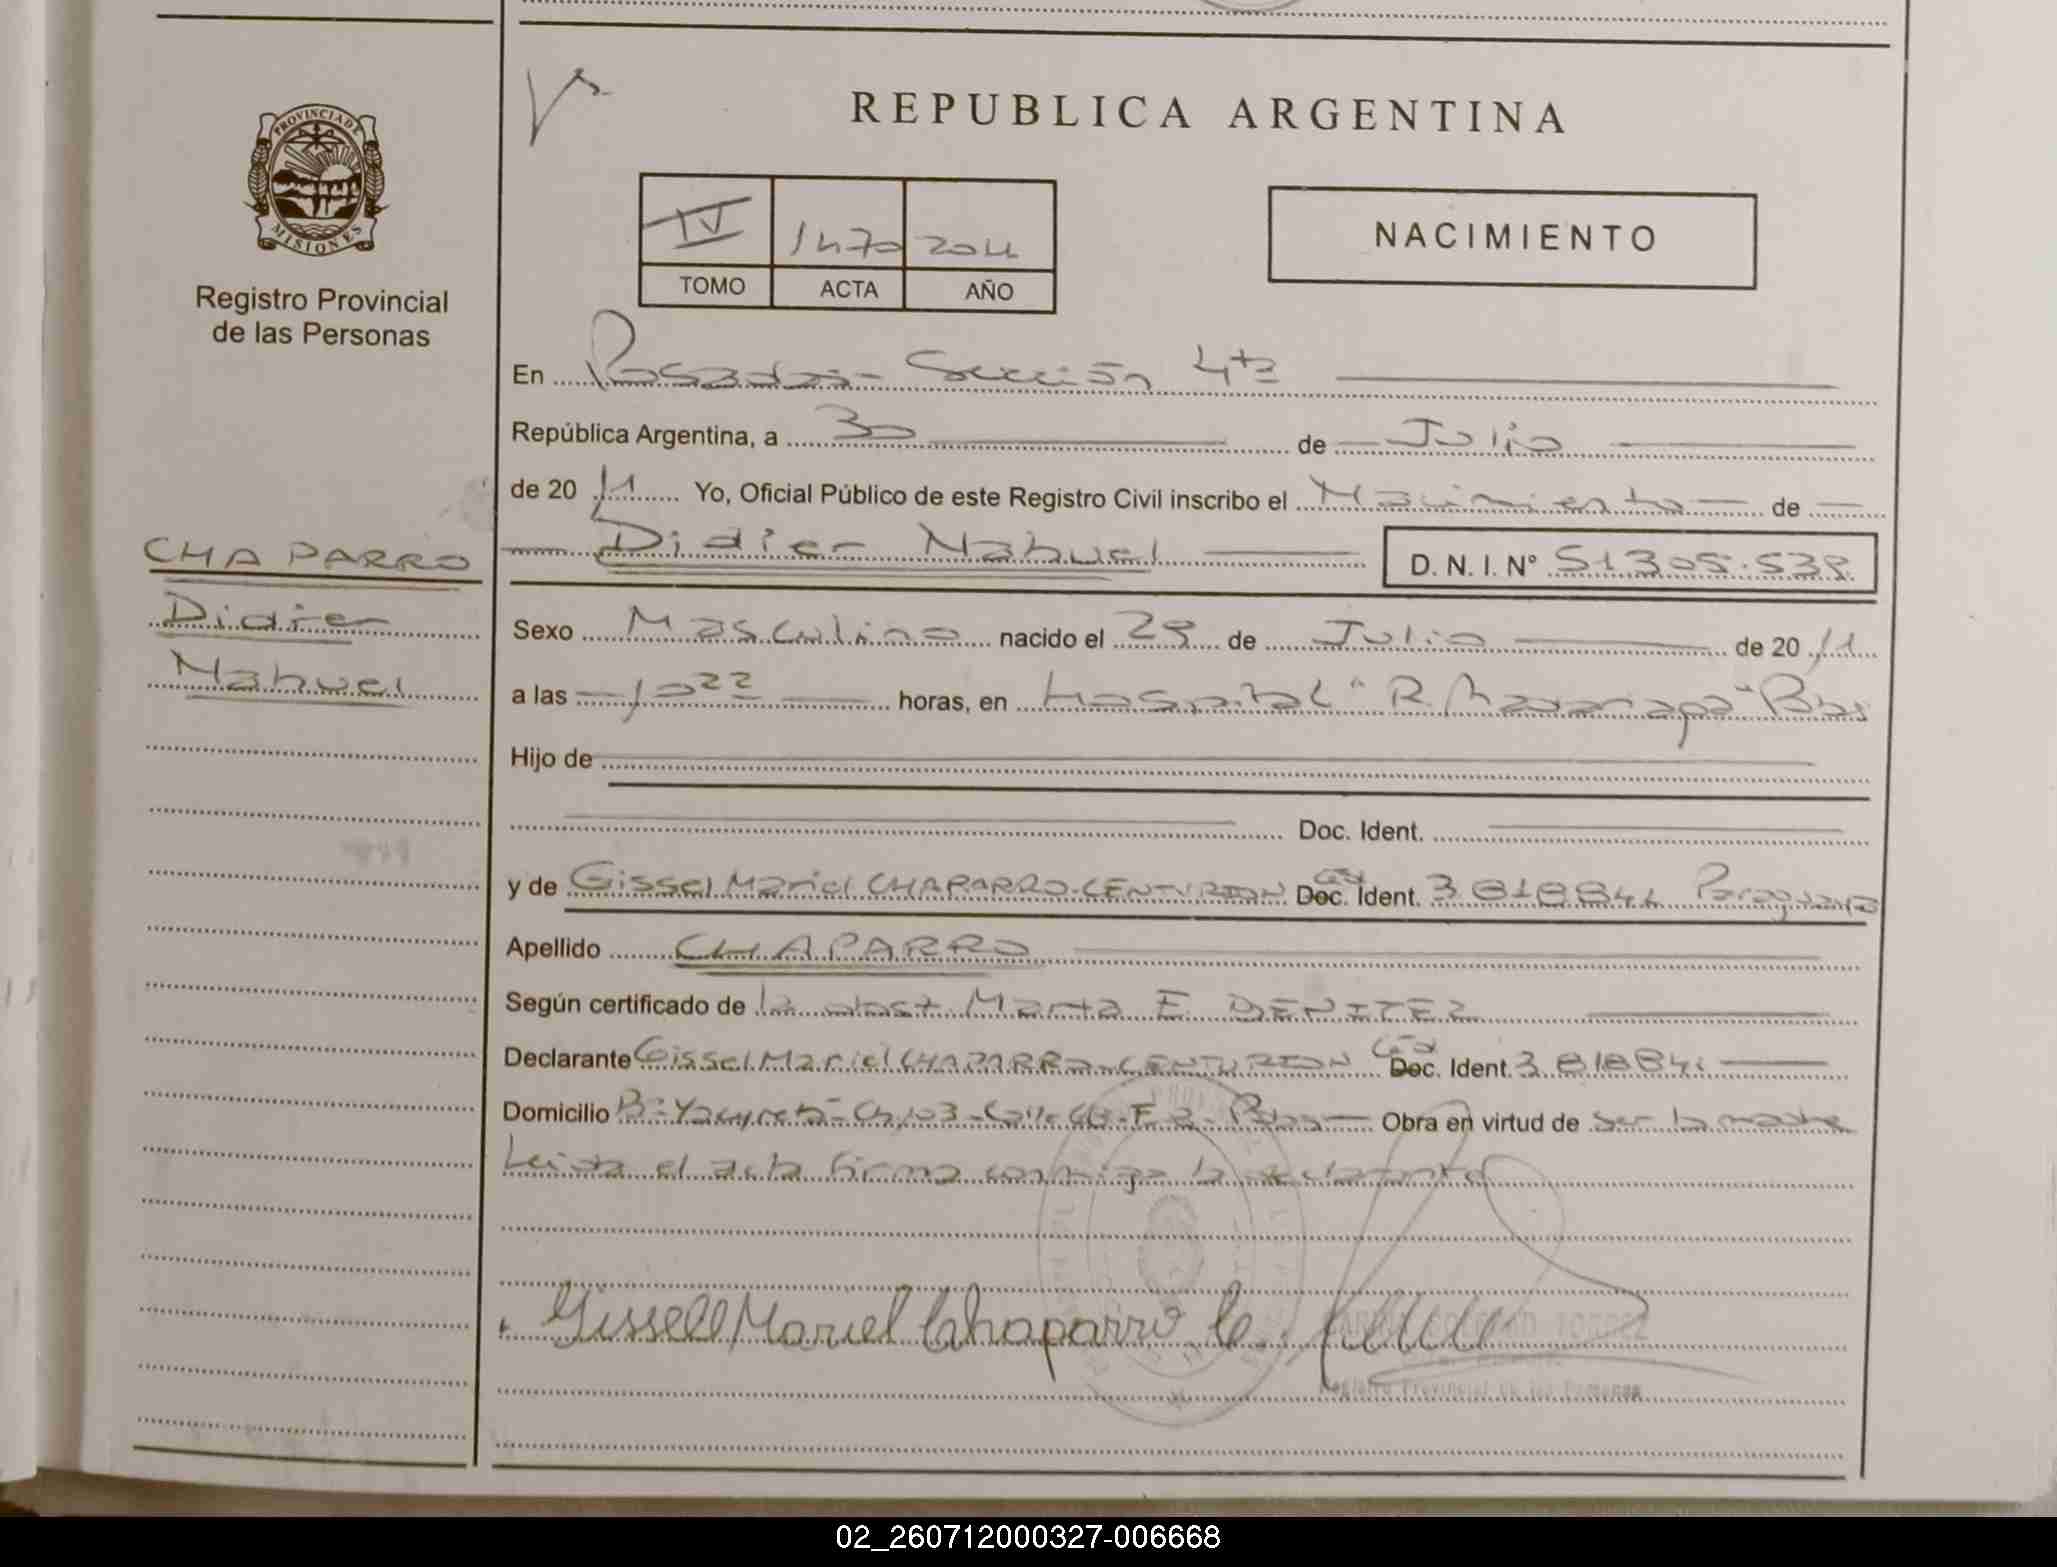 REPUBLICA ARGENTINA
PROVINCIA DE
MISIONES
Registro Provincial
de las Personas
IV 1470 2011
TOMO ACTA AÑO
NACIMIENTO
En Posadas - Sección 4ta
República Argentina, a 30 de Julio
de 20 11 Yo, Oficial Público de este Registro Civil inscribo el Nacimiento de
CHAPARRO
Didier Nahuel D. N. I. Nº 51305.538
Didier
Nahuel
Sexo Masculino nacido el 29 de Julio de 20 11
a las 10 22 horas, en Hospital "R. Madariaga" Pdas
Hijo de
Doc. Ident.
y de Gissel Mariel CHAPARRO-CENTURION Céd Doc. Ident. 3 818841 Paraguaya
Apellido CHAPARRO
Según certificado de la obst Marta E. BENITEZ
Declarante Gissel Mariel CHAPARRO-CENTURION Céd Doc. Ident 3 818841
Domicilio Bº Yacyretá - Ch 103 - Calle Pdas Obra en virtud de ser la madre
Leida el acta firma conmigo la declarante
Gissell Mariel Chaparro C.
Registro Provincial de las Personas
02_260712000327-006668